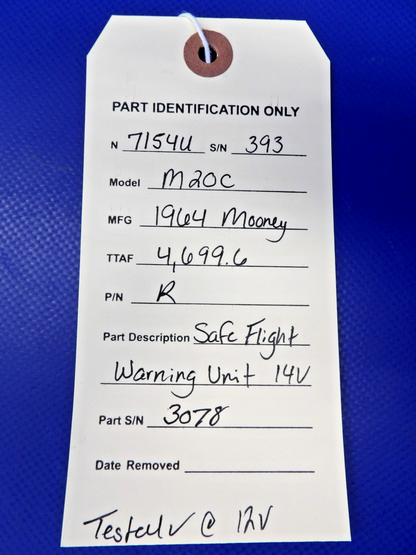 PART IDENTIFICATION ONLY
N 7154U S/N 393
Model M20C
MFG 1964 Mooney
TTAF 4,699.6
P/N R
Part Description Safe Flight
Warning Unit 14V
Part S/N 3078
Date Removed
Tested ✓ @ 12V